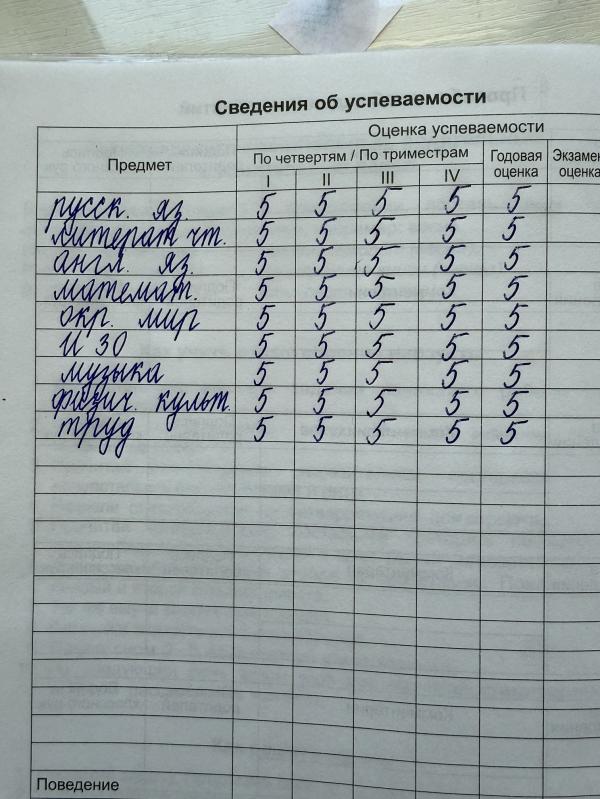 Сведения об успеваемости
Предмет
Оценка успеваемости
По четвертям / По триместрам
Годовая оценка
I II III IV
русск. яз. 5 5 5 5 5
литерат чт. 5 5 5 5 5
англ. яз. 5 5 5 5 5
математ. 5 5 5 5 5
окр. мир 5 5 5 5 5
ИЗО 5 5 5 5 5
музыка 5 5 5 5 5
физич. культ. 5 5 5 5 5
труд 5 5 5 5 5
Поведение